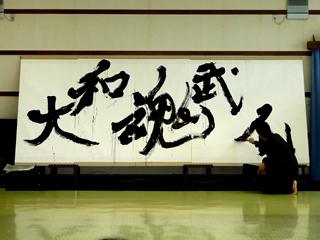 大和魂武